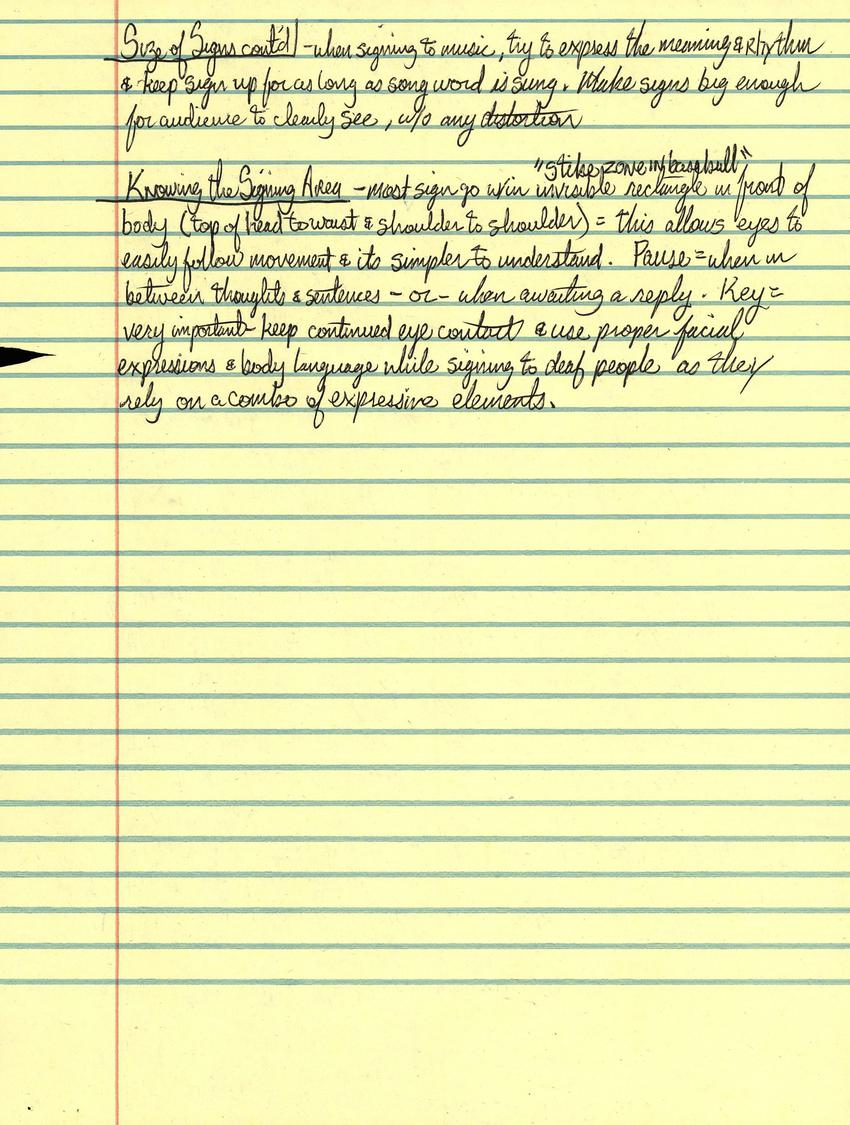 Size of Signs cont'd - when signing to music, try to express the meaning & Rhythm
& keep sign up for as long as song word is sung. Make signs big enough
for audience to clearly see, w/o any distortion
"stike zone in baseball"
Knowing the Signing Area - most sign go w/in invisible rectangle in front of
body (top of head to waist & shoulder to shoulder) = this allows eyes to
easily follow movement & its simpler to understand. Pause = when in
between thoughts & sentences - or - when awaiting a reply. Key =
very important - keep continued eye contact & use proper facial
expressions & body language while signing to deaf people as they
rely on a combo of expressive elements.